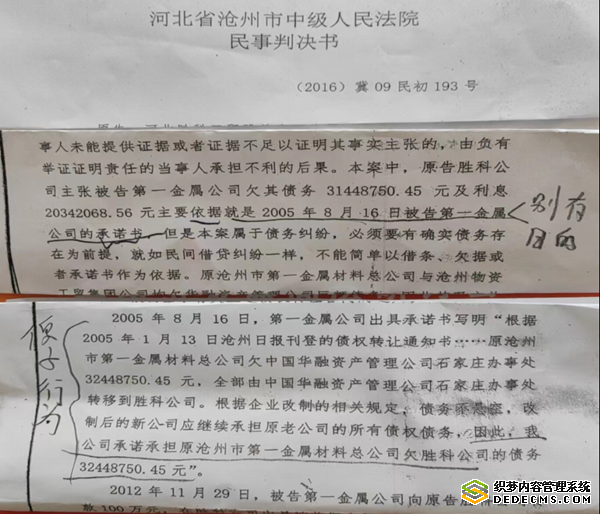 河北省沧州市中级人民法院
民事判决书
(2016)冀 09 民初 193 号
事人未能提供证据或者证据不足以证明其事实主张的，由负有
举证证明责任的当事人承担不利的后果。本案中，原告胜科公
司主张被告第一金属公司欠其债务 31448750.45 元及利息
20342068.56 元主要依据就是 2005 年 8 月 16 日被告第一金属
公司的承诺书。但是本案属于债务纠纷，必须要有确实债务存
在为前提，就如民间借贷纠纷一样，不能简单以借条、欠据或
者承诺书作为依据。原沧州市第一金属材料总公司与沧州物资
别有
目的
2005 年 8 月 16 日，第一金属公司出具承诺书写明“根据
2005 年 1 月 13 日沧州日报刊登的债权转让通知书……原沧州
市第一金属材料总公司欠中国华融资产管理公司石家庄办事处
32448750.45 元，全部由中国华融资产管理公司石家庄办事处
转移到胜科公司。根据企业改制的相关规定，债务不悬空，改
制后的新公司应继续承担原老公司的所有债权债务，因此，我
公司承诺承担原沧州市第一金属材料总公司欠胜科公司的债务
32448750.45 元”。
2012 年 11 月 29 日，被告第一金属公司向原告胜科公司
傻子行为
织梦内容管理系统
DEDECMS.COM